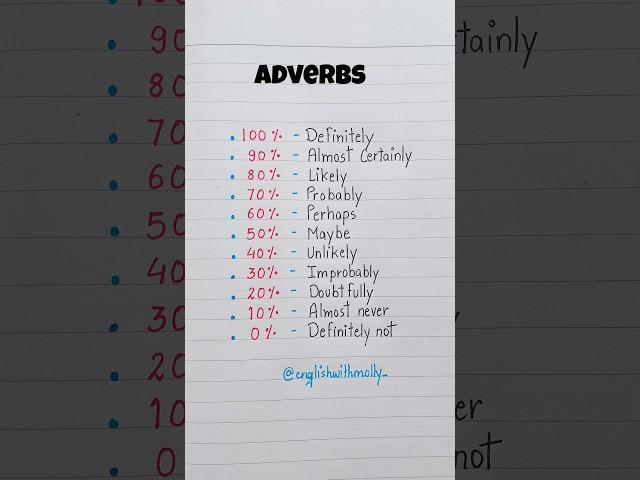 ADVERBS
• 100% - Definitely
• 90% - Almost Certainly
• 80% - Likely
• 70% - Probably
• 60% - Perhaps
• 50% - Maybe
• 40% - Unlikely
• 30% - Improbably
• 20% - Doubtfully
• 10% - Almost never
• 0% - Definitely not
@englishwithmolly_